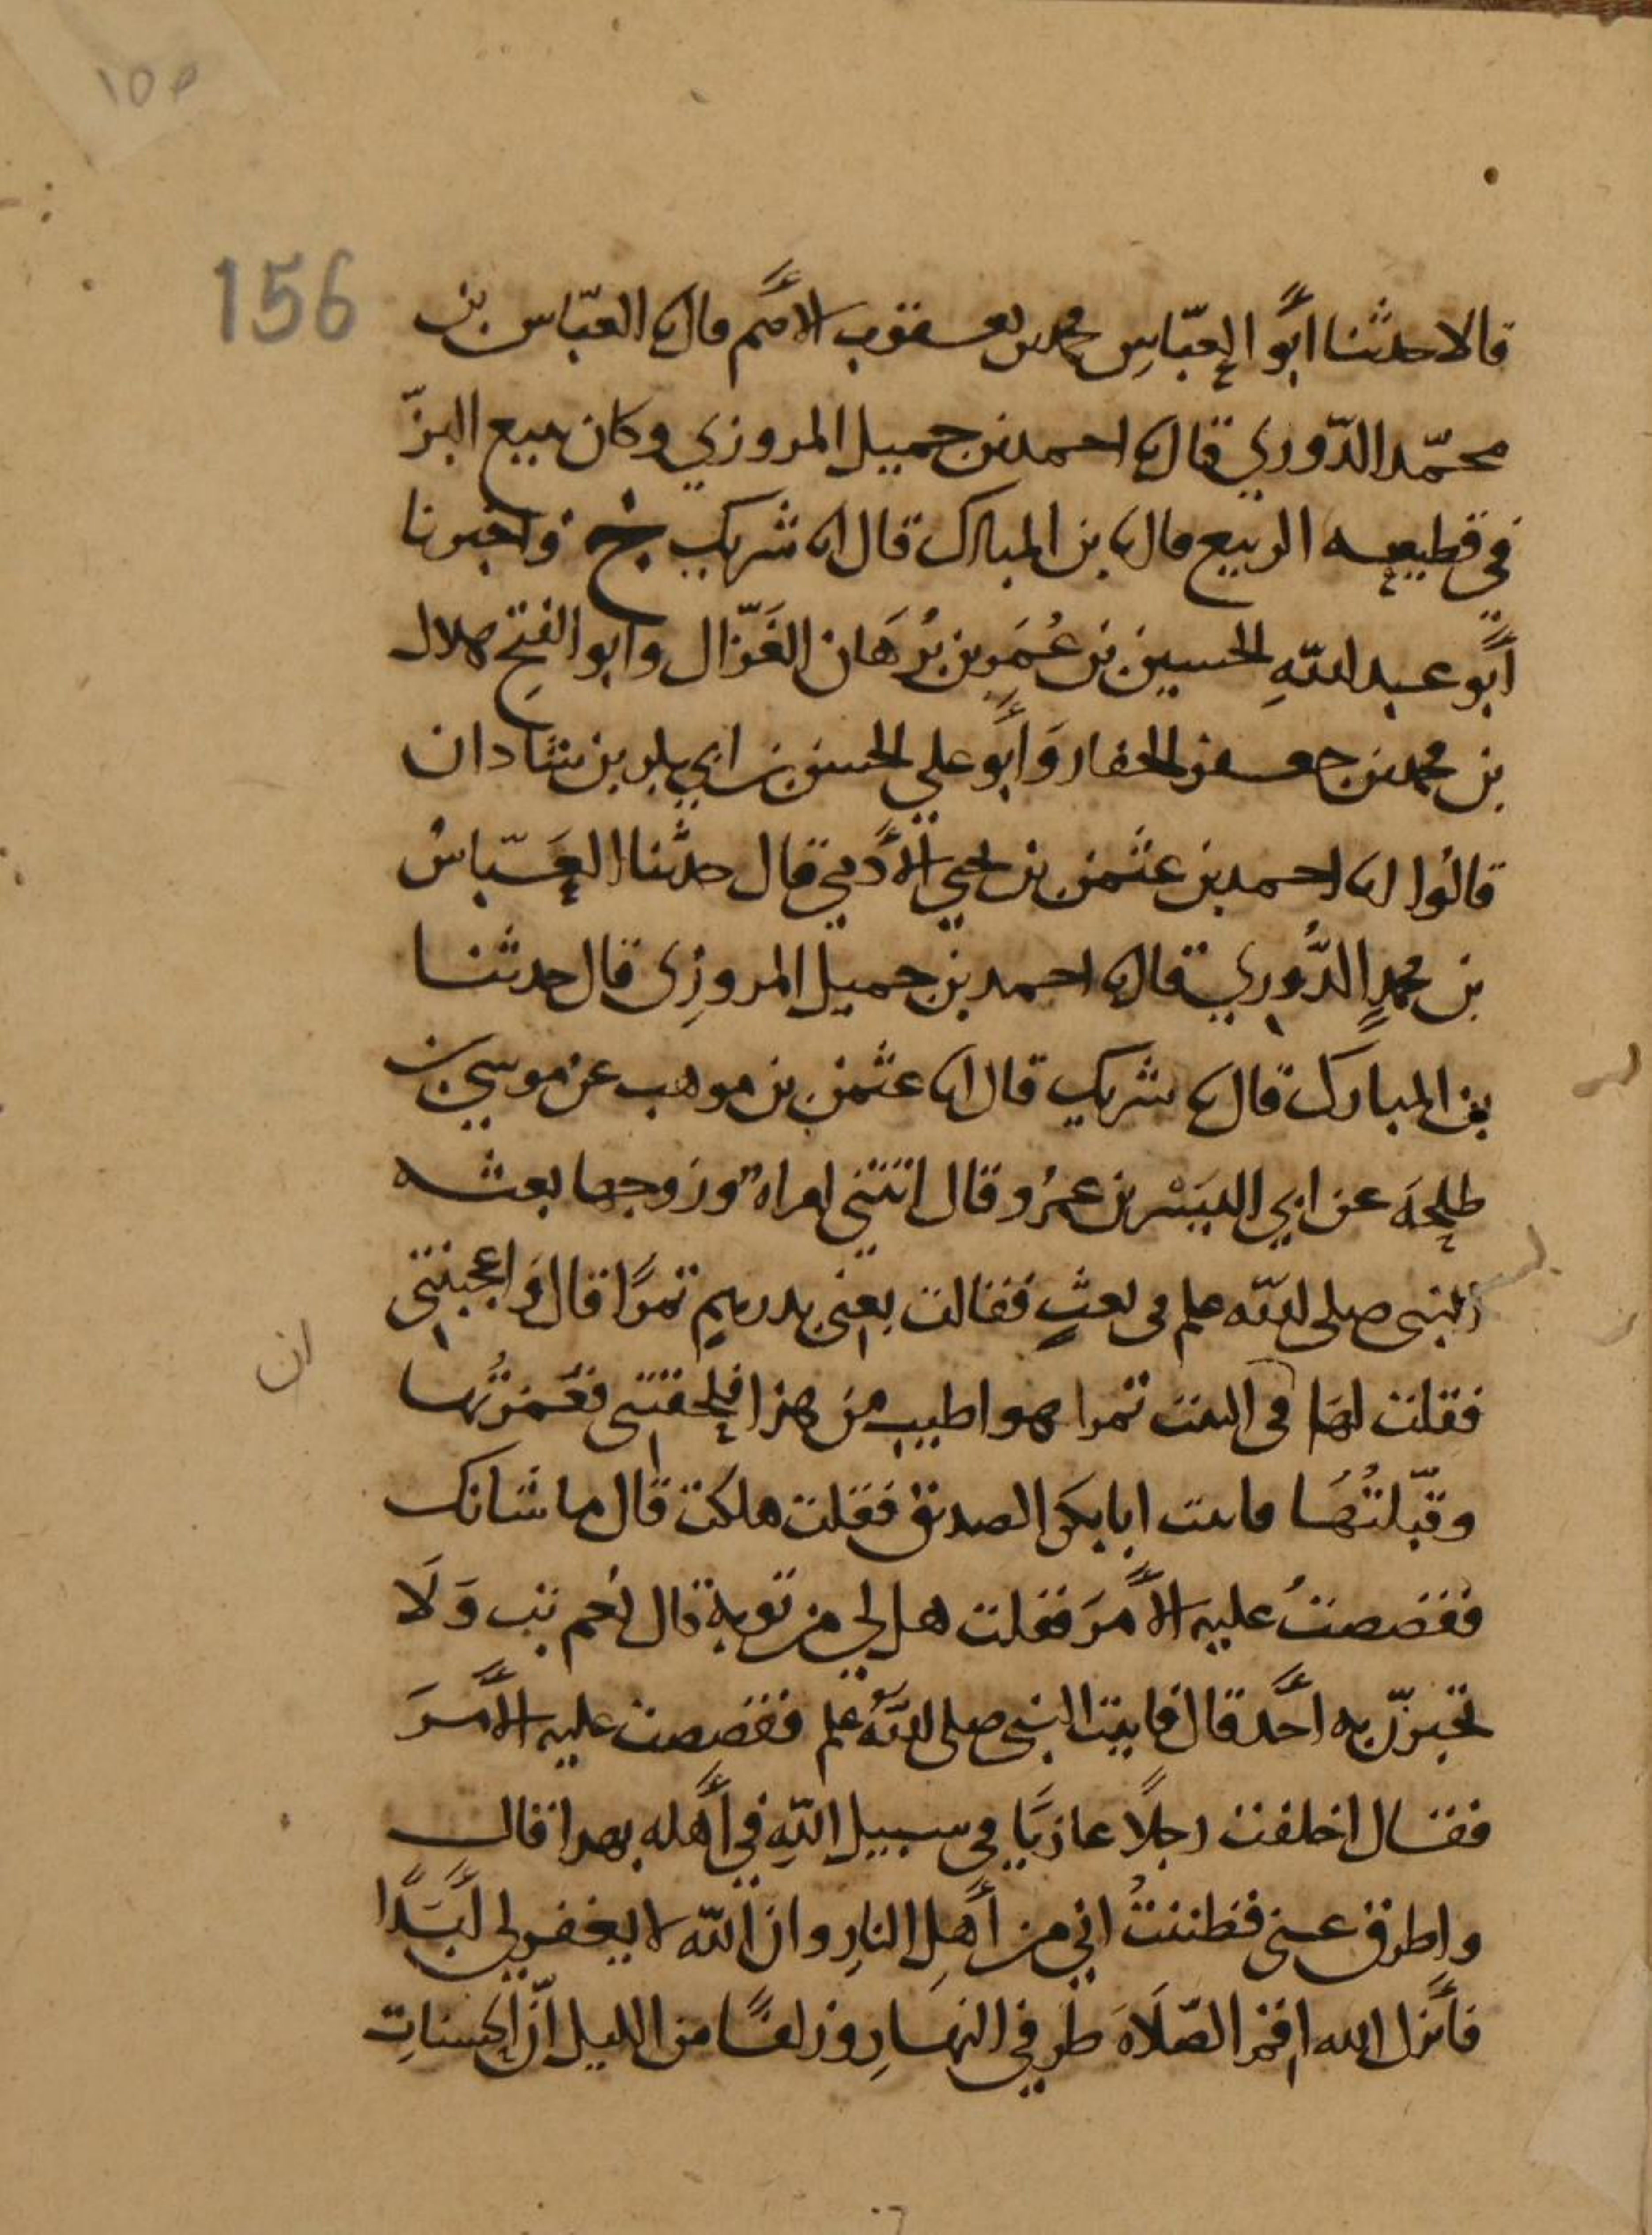 ١٥٥
156
قالا حدثنا أبو العبّاسِ محمد بن يعقوب الأصم قال نا العبّاس بن
محمّد الدّوري قال نا احمد بن جميل المروزي وكان يبيع البزّ
في قطيعه الربيع قال نا بن المبارك قال انا شريك ح واخبرنا
أبو عبد اللهِ الحسين بن عُمَر بن بُرهَان الغَزّال وابو الفتحِ هلال
بن محمد بن جعفر الحفار وَأبو علي الحسن بن ابي بكر بن شادان
قالوا انا احمد بن عثمن بن يحيى الأدمي قال حدثنا العَبّاسُ
بن محمدٍ الدُّوري قال نا احمد بن جميل المروزِى قال حدثنا
بن المبارك قال نا شريك قال انا عثمن بن موهب عن موسى بن
طلحَه عن ابي اليَسَر بن عمرٍو قال اتتني امراه وزوجها بعثه
النبى صلى الله علم فى بعثٍ فقالت بعنى بدرهمٍ تمرًا قال وَاعجبتني
ان
فقلت لهَا فى البيت تمرا هو اطيب من هذا فلحقتنى فغمزتُها
وقبّلتُهَا فاتيت ابا بكر الصديق فقلت هلكت قال ما شانك
فقصصتُ عليه الأمرَ فقلت هل لي من توبة قال نعم تب وَلَا
تخبرنّ به أحَدًا قال فاتيت النبىَ صلى اللهُ علم فقصصت عليه الأمرَ
فقال اخلفت رجلًا غازيًا في سبيل اللهِ في أهله بهذا قال
واطرق عنى فظننتُ اني من أهلِ النارِ وان الله لا يغفر لي أبَدًا
فأنزل الله اقم الصّلَاةَ طرفي النهارِ وزلفًا من الليل انّ الحسناتِ